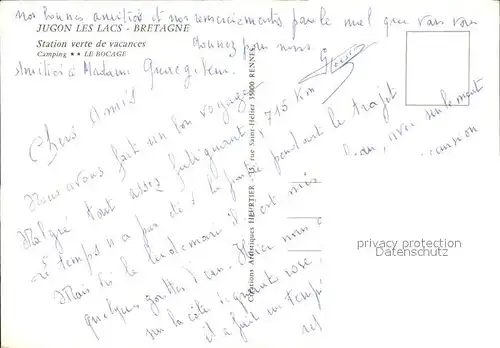 nos bonnes amitiés et nos remerciements pour le mal que vous vous
JUGON LES LACS - BRETAGNE
Station verte de vacances
donnez pour nous.
Camping ★★ LE BOCAGE
Amitiés à Madame
Chers Amis
Nous avons fait un bon voyage
Malgré tout assez fatiguant, 715 Km
le temps n'a pas été à la pendant le trajet
Mais ici le lendemain il est mis
quelques gouttes d'eau. Hier nous
sur la côte de granit rose,
il a fait un temps
beau, avec seulement
excursion
Créations Artistiques HEURTIER - 13, rue Saint-Hélier - 35000 RENNES
privacy protection
Delcampe.net